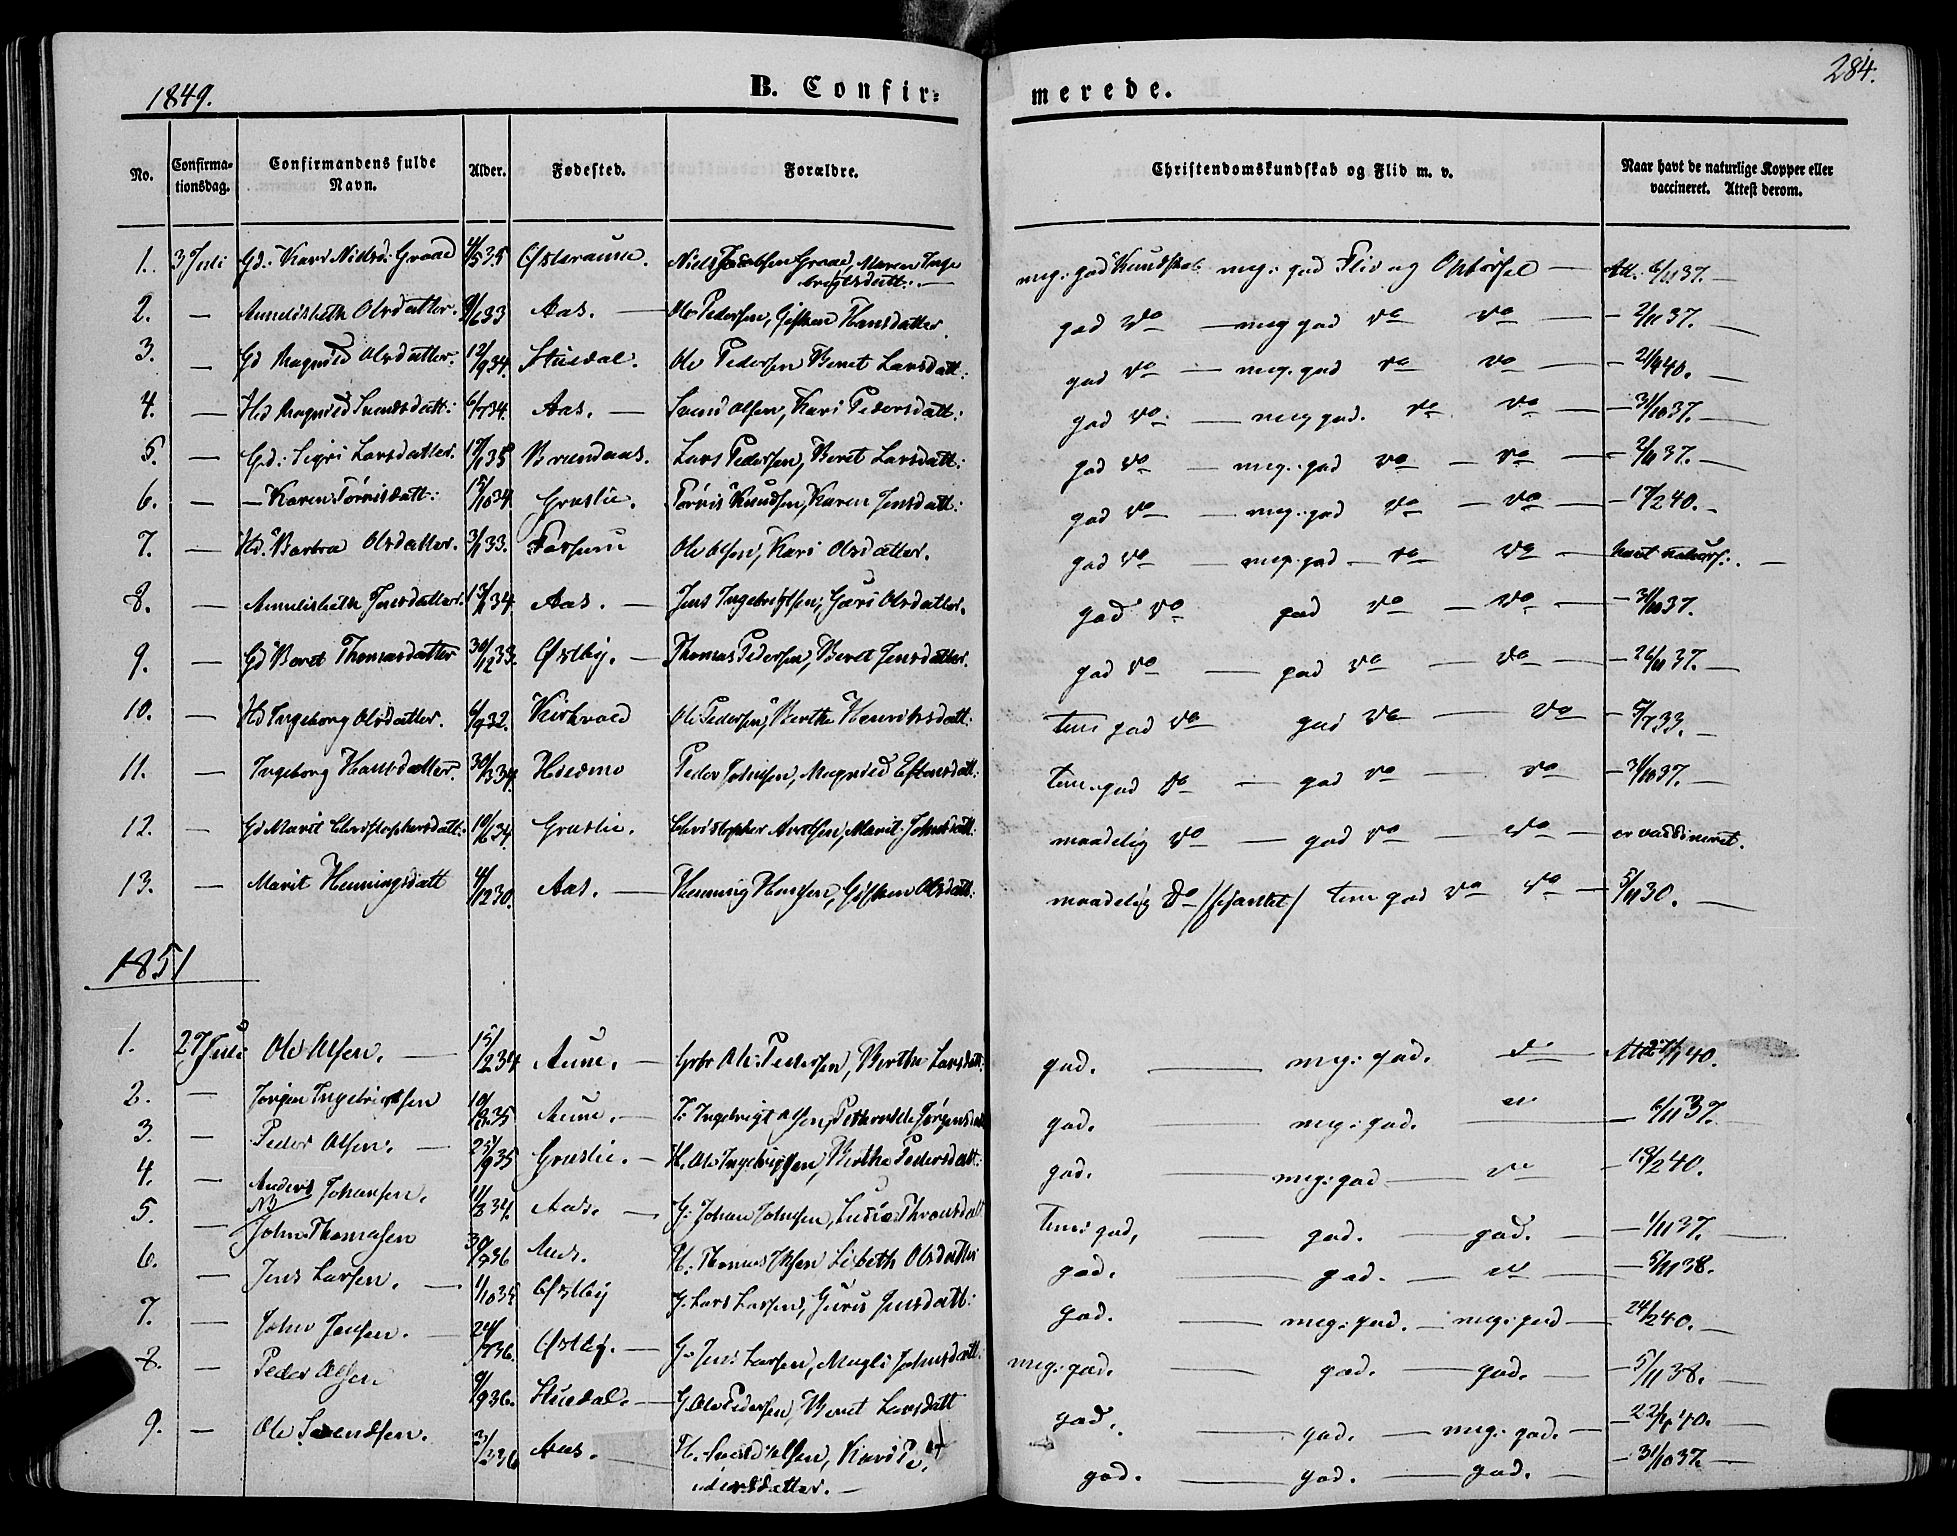 1849.
B. Confir-
merede.
284.
No.
Confirma-
tionsdag.
Confirmandens fulde
Navn.
Alder.
Fødested.
Forældre.
Christendomskundskab og Flid m. v.
Naar havt de naturlige Kopper eller
vaccineret. Attest derom.
1. 3 Juli Gd: Kari Nielsd: Graae 4/5 35 Østeraune. Niels Jacobsen Graae, Maren Inge
brigtsdatt:. — meg: god Kundskab meg: god Flid og Opførsel — Att. 6/11 37. —
2. — Annelisbeth Olsdatter. 9/6 33 Aas. — Ole Pedersen, Gisken Hansdatter god do — meg god do do — - 2/11 37. —
3. — Gd Magnild Olsdatter. 12/9 34. Stuedal. Ole Pedersen Beret Larsdatt: god do — meg. god do do — - 21/9 40. —
4. — Hd Magnild Svendsdatt: 6/7 34. Aas. — Svend Olsen, Kari Pedersdatt: god do — meg god. do do — - 31/10 37. —
5. — Gd: Sigri Larsdatter. 35 Brændaas. Lars Pedersen, Beret Larsdatt: god do — meg: god do — do — - 2/11 37. —
6. — — Karen Tørrisdatt: 15/10 34. Græslie. Tørris Knudsen, Karen Jensdatt: god do — meg: god do — do — - 17/2 40. -
7. — Hd. Barbra Olsdatter. 3/1 33. Fossum Ole Olsen, Kari Olsdatter. god do — meg: god — do do — havt naturl:. —
8. — Annelisbeth Jensdatter. 34. Aas. — Jens Ingebrigtsen, Guri Olsdatter. god do god do — do — - 31/10 37.
9. — Gd Beret Thomasdatter 30/12 33. Østby. — Thomas Pedersen, Beret Jensdatter. god do — god do — do — - 26/11 37. —
10. — Hd Ingeborg Olsdatter. 6/9 32. Kirkvold Ole Pedersen, Berthe Henriksdatt: tem god do god do — do - 5/7 33. —
11. — Ingeborg Hansdatter. 30/3 34. Hiedmo Peder Johnsen, Magnild Estensdatt: tem. god do — god do — do - 31/10 37. —
12. — Gd Marit Christophersdatt: 10/6 34. Græslie. Christopher Arntsen, Marit Johnsdatt: maadelig do — god do — do — er vaccineret.
13. — Marit Henningsdatt 4/12 30. Aas. — Henning Hansen, Gisken Olsdatt: maadelig do tem god do do — 5/11 30. —
1851
1. 27 Juli Ole Olsen. — 15/2 34 Aune. — Ole Pedersen, Berthe Larsdatt: god. — meg: god. do 40.
2. — Jørgen Ingebrigtsen 35 Aune. — Ingebrigt Olsen, god. — meg: god. — do - 6/11 37.
3. — Peder Olsen. — 25/9 35 Græslie. — H. Ole Ingebrigtsen, Berthe Pedersdatt: god. — meg: god — do - 19/2 40.
4. — Anders Johansen. 11/8 34. Aas. — G: Johan Johnsen, Lucie Thronsdatt tem: god, — god. — god. — - 1/11 37. —
NB
5. — John Thomasen 36 Aas. H. Thomas Olsen Lisbeth Olsdatter god. — god. — do - 5/11 38.
6. — Jens Larsen. — 1/10 35 Østby G. Lars Larsen, Guri Jensdatt: god. — meg: god. — meg: god — 24/2 40. —
7. — John Jensen. — 24/7 36. Østby. — G. Jens Larsen, Magli Johnsdatt: meg: god. — god. — god. — - 5/11 38. —
8. — Peder Olsen 9/9 36. Stuedal. — G. Ole Pedersen, Beret Larsdatt god. — god. — meg: god. — - 40. —
9. — Ole Svendsen. 36 Aas. H. Svend Olsen, Kari Pe-
dersdatter. — god. — god. — god. — - 31/10 37. —